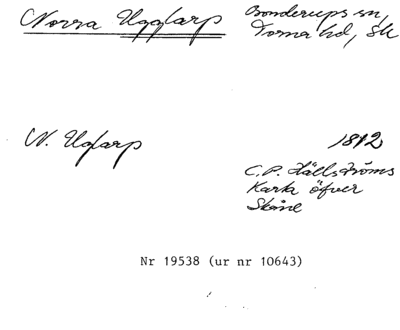 Norra Ugglarp Bonderups sn,
Torna hd, Sk
N. Uglarp 1812
C. P. Hällströms
Karta öfver
Skåne
Nr 19538 (ur nr 10643)